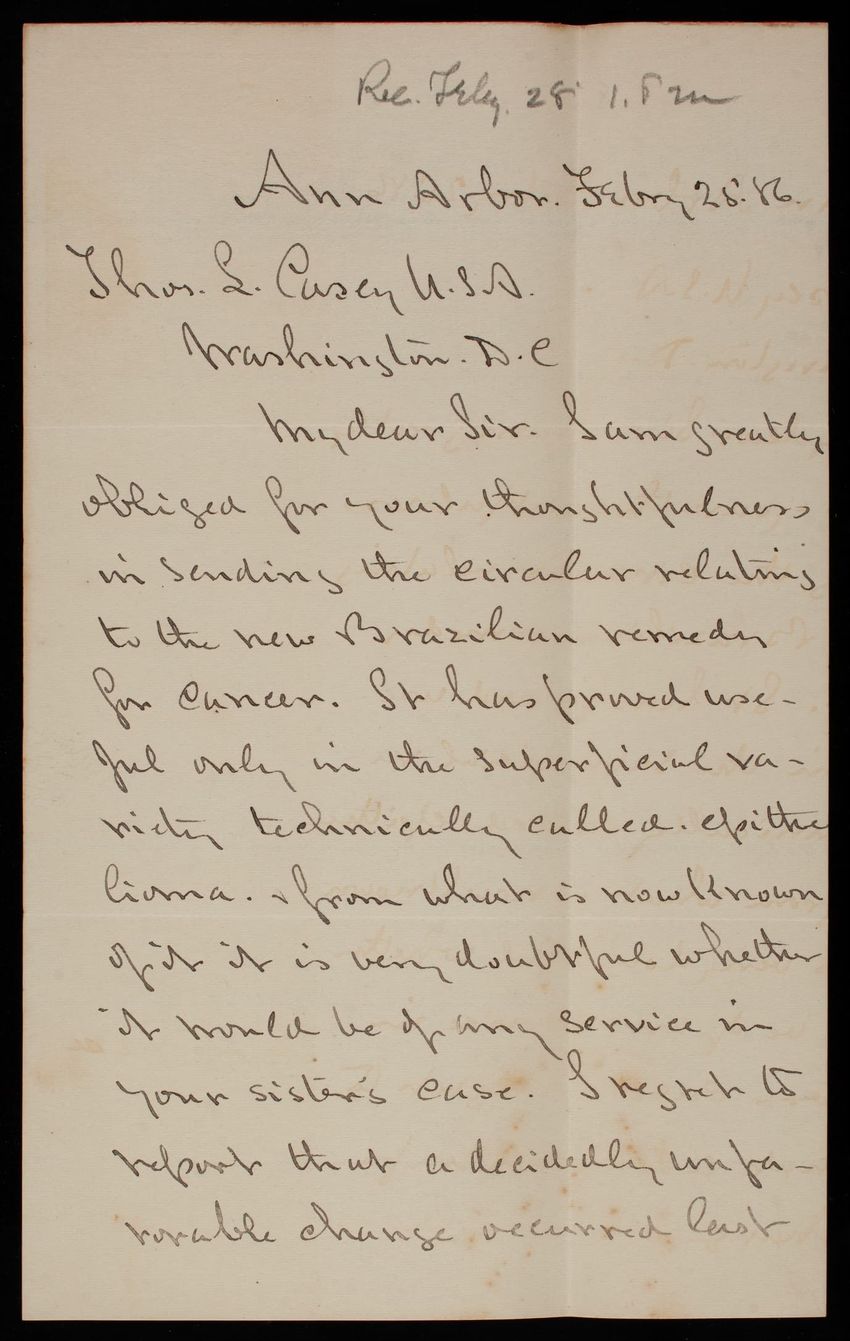 Rec. Feby. 28 1. P m
Ann Arbor. Febry 25. 86.
Thos. L. Casey U.S.A.
Washington. D. C
My dear Sir. I am greatly
obliged for your thoughtfulness
in sending the circular relating
to the new Brazilian remedy
for cancer. It has proved use-
ful only in the superficial va-
riety technically called. epithe
lioma. & from what is now Known
of it it is very doubtful whether
it would be of any service in
your sister's case. I regret to
report that a decidedly unfa-
vorable change occurred last